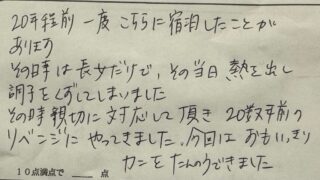 20年程前 一度 こちらに宿泊したことが
あります
その時は長女だけで、その当日 熱を出し
調子をくずしてしまいました
その時 親切に対応して頂き 20数年前の
リベンジに やってきました。今回は おもいっきり
カニを たんのうできました
10点満点で 点